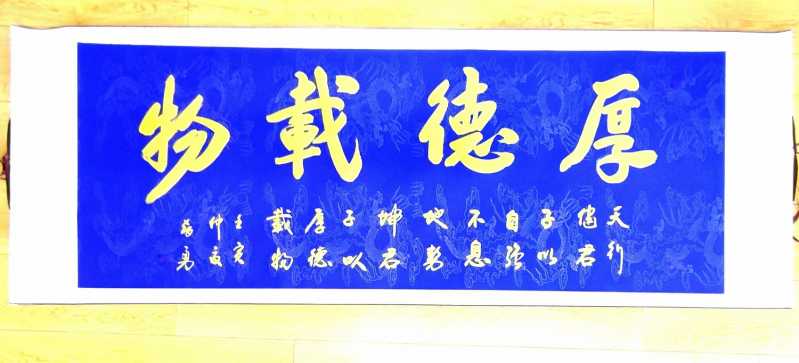 厚德載物
天行
健君
子以
自强
不息
地势
坤君
子以
厚德
載物
壬寅
仲夏
勇